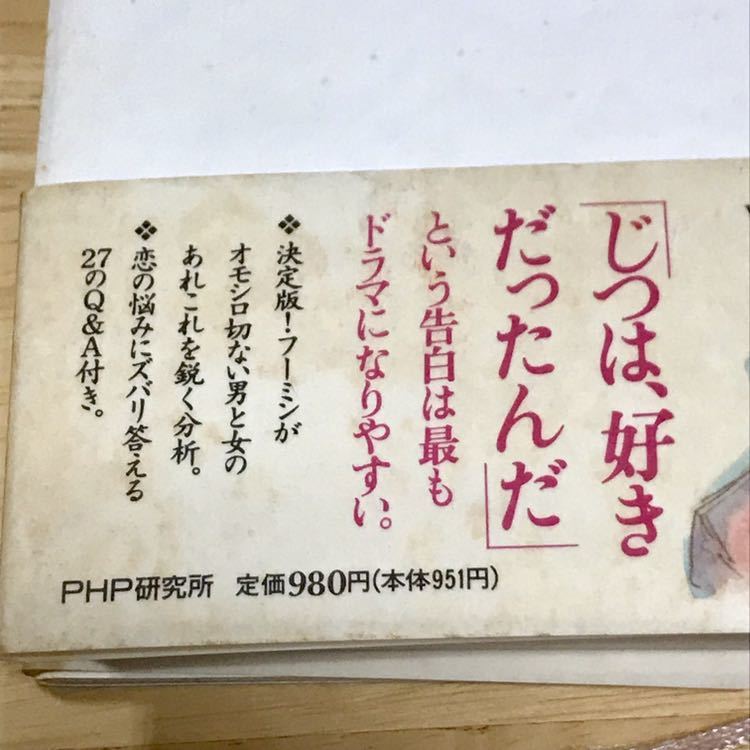 「じつは、好き
だったんだ」
という告白は最も
ドラマになりやすい。
❖決定版！フーミンが
オモシロ切ない男と女の
あれこれを鋭く分析。
❖恋の悩みにズバリ答える
27のQ&A付き。
PHP研究所 定価980円(本体951円)